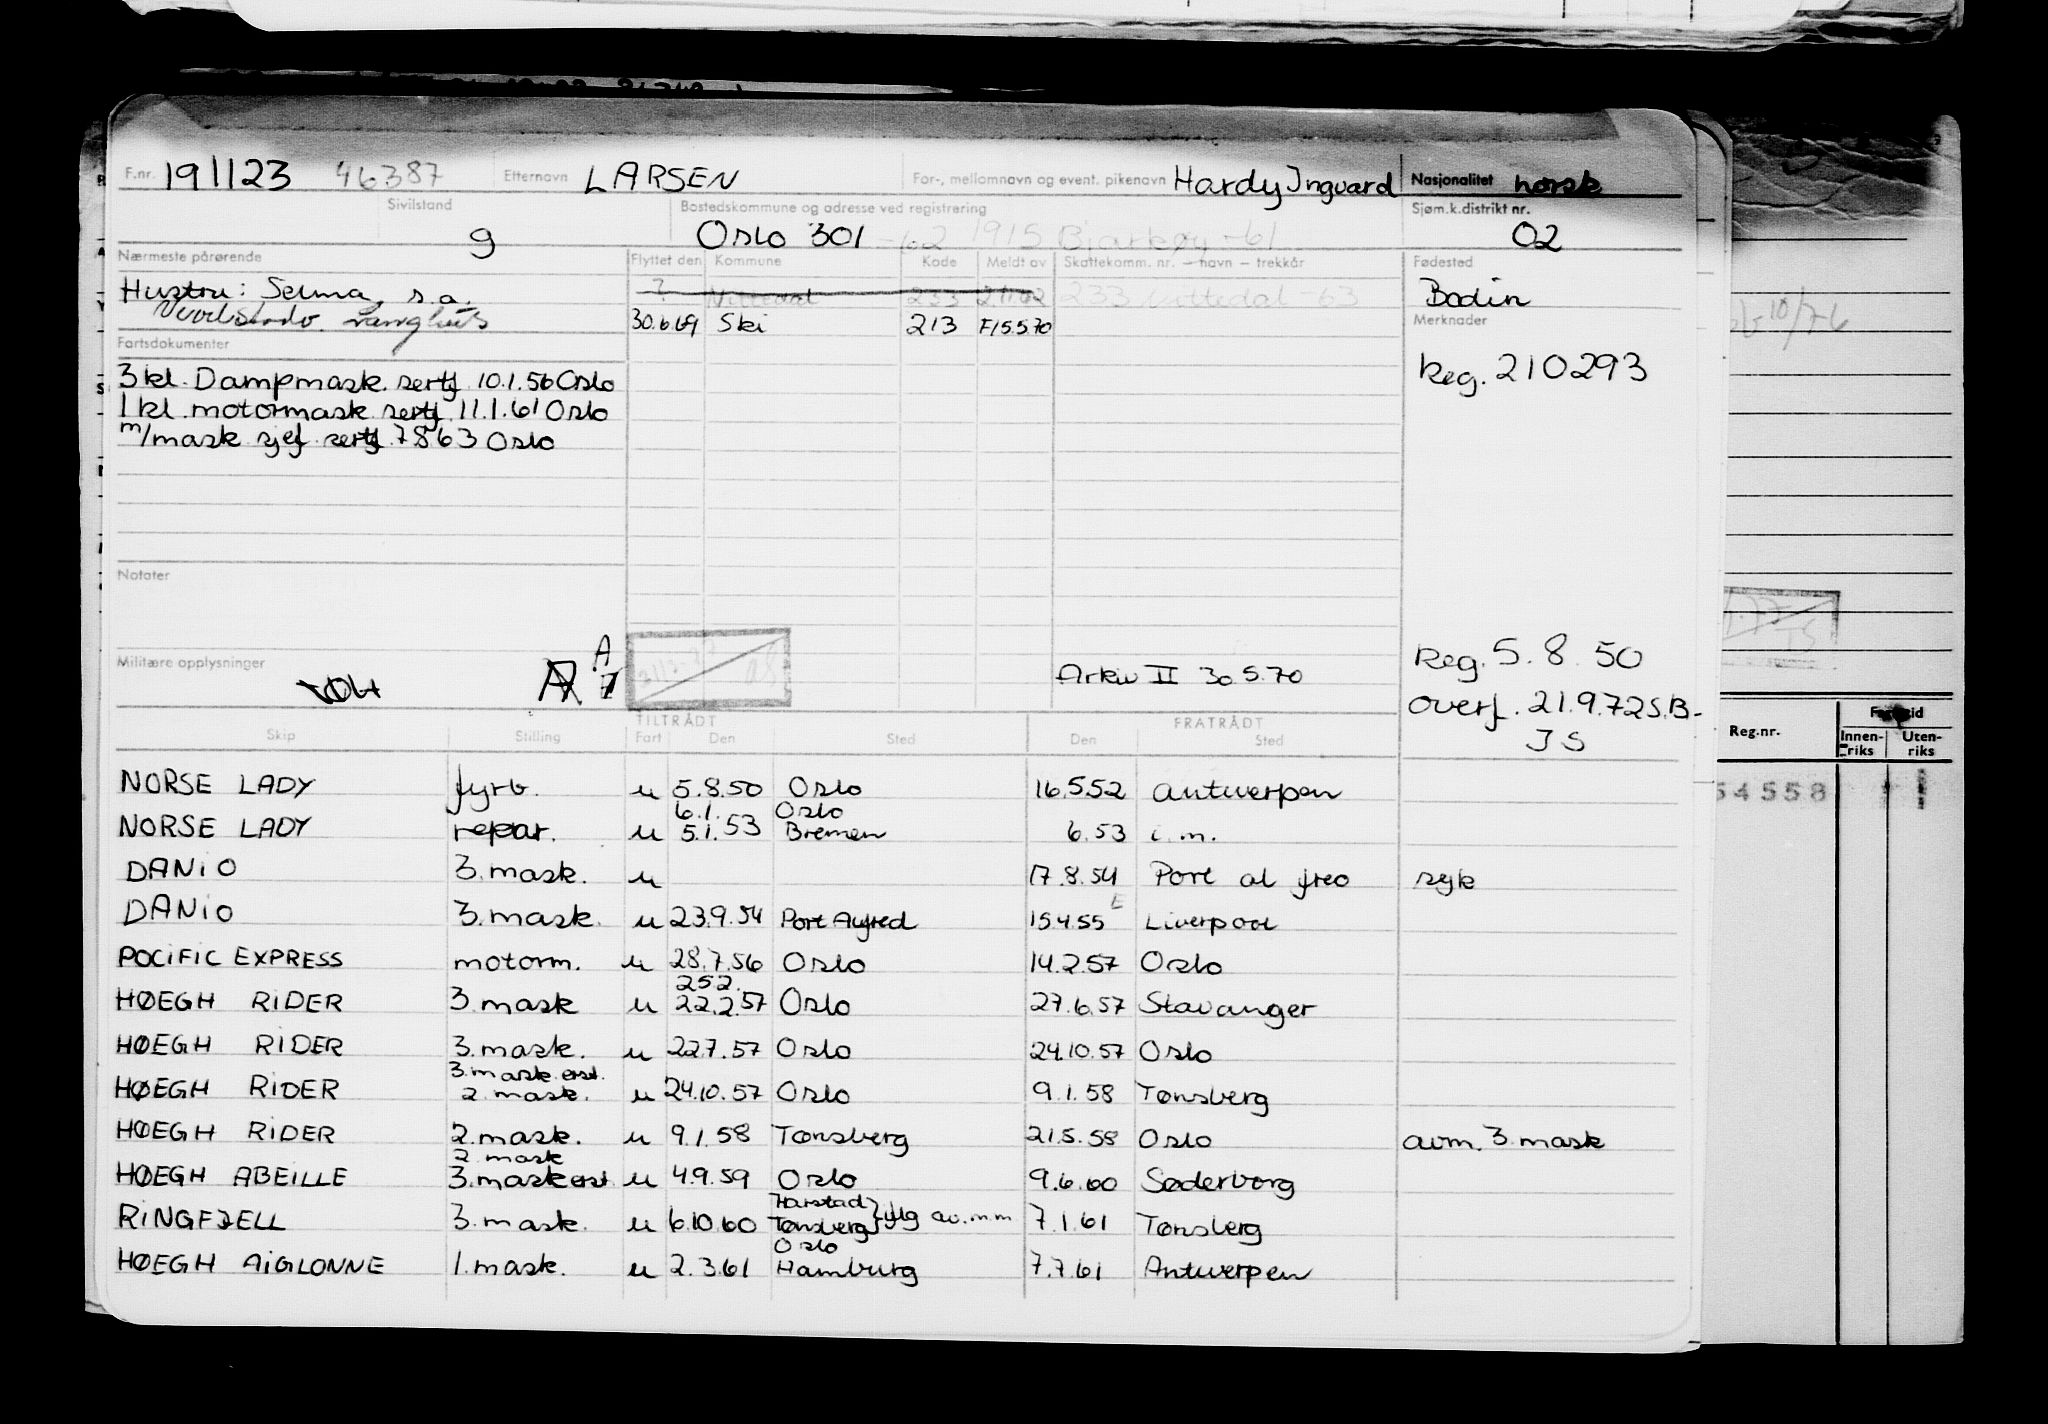 F.nr. 191123 46387 Etternavn LARSEN For-, mellomnavn og event. pikenavn Hardy Ingvard Nasjonalitet norsk
Sivilstand Bostedskommune og adresse ved registrering Sjøm.k.distrikt nr.
g Oslo 301 -62 1915 Bjarkøy -61 02
Nærmeste pårørende Flyttet den Kommune Kode Meldt av Skattekomm. nr. – navn – trekkår Fødested
Hustru: Selma, s.a. ? Nittedal 233 233 Nittedal -63 Bodin
30.6.69 Ski 213 F/5.5.70 Merknader
Fartsdokumenter
3 kl. Dampmask. sertf 10.1.56 Oslo Reg. 210293
1 kl. motormask sertf 11.1.61 Oslo
m/mask sjef sertf 7863 Oslo
Notater
Reg. 5.8.50
Militære opplysninger A Arkiv II 30.5.70
Overf. 21.9.72 S.B-
JS
TILTRÅDT FRATRÅDT
Skip Stilling Fart Den Sted Den Sted
NORSE LADY fyrb. u 5.8.50 Oslo 16.5.52 Antwerpen
6.1. Oslo
NORSE LADY repar. u 5.1.53 Bremen 6.53 i.m.
DANIO 3.mask. u 17.8.54 Port al freo syk
DANIO 3.mask. u 23.9.54 Port Alfred 15.4.55 E Liverpool
POCIFIC EXPRESS motorm. u 28.7.56 Oslo 14.2.57 Oslo
25.2.
HØEGH RIDER 3.mask u 22.2.57 Oslo 27.6.57 Stavanger
HØEGH RIDER 3.mask. u 22.7.57 Oslo 24.10.57 Oslo
3.mask erst.
HØEGH RIDER 2.mask. u 24.10.57 Oslo 9.1.58 Tønsberg
HØEGH RIDER 2.mask. u 9.1.58 Tønsberg 21.5.58 Oslo avm. 3.mask
2.mask
HØEGH ABEILLE 3.mask erst u 4.9.59 Oslo 9.6.60 Søderborg
Harstad
RINGFJELL 3.mask. u 6.10.60 Tønsberg iflg av.m.m 7.1.61 Tønsberg
Oslo
HØEGH AIGLONNE 1.mask. u 2.3.61 Hamburg 7.7.61 Antwerpen
Reg.nr. Innen-riks Uten-riks
54558